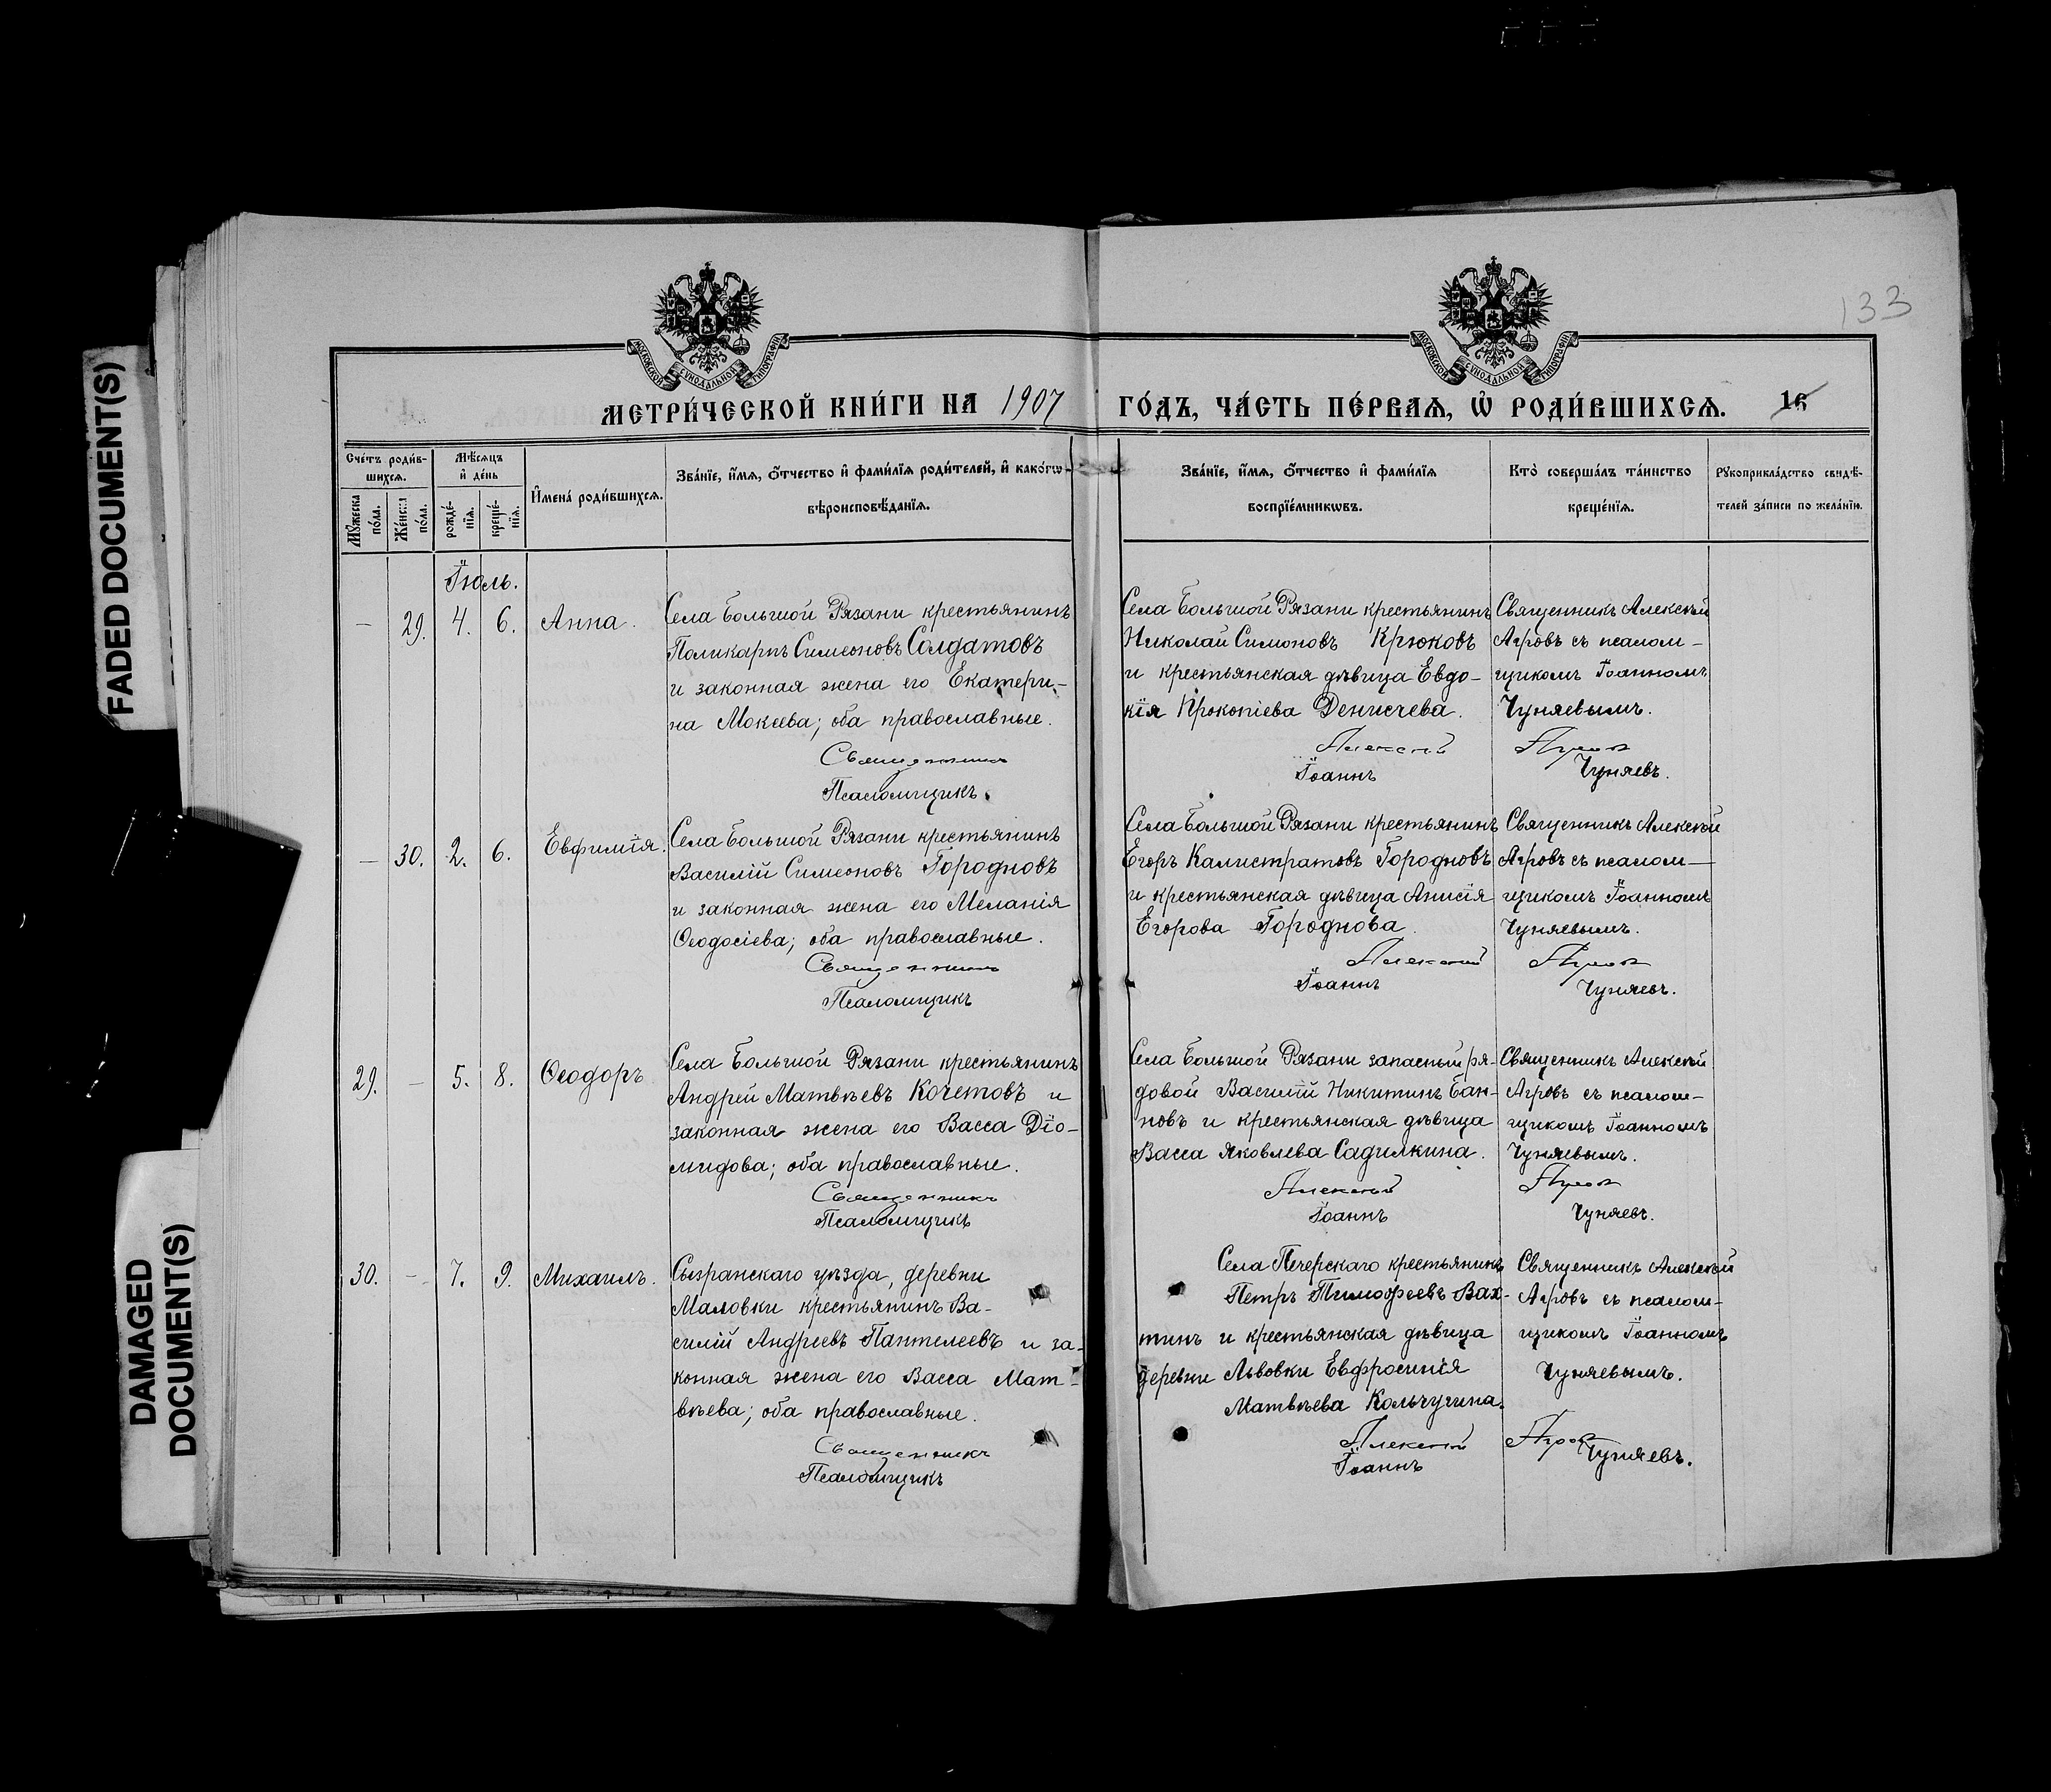 FADED DOCUMENT(S)
DAMAGED
DOCUMENT(S)
133
МОСКОВСКОЙ СѴНОДАЛЬНОЙ ТИПОГРАФІИ
МОСКОВСКОЙ СѴНОДАЛЬНОЙ ТИПОГРАФІИ
МЕТРИ́ЧЕСКОЙ КНИ́ГИ НА 1907 ГО́ДЪ, ЧА́СТЬ ПЕ́РВАѦ, Ѡ҆ РОДИ́ВШИХСѦ. 16
Сче́тъ роди́в-
шихсѧ.
Мꙋ́жеска
по́ла.
Же́нска
по́ла.
Мѣ́сѧцъ
и҆ де́нь
рожде́-
нїѧ.
креще́-
нїѧ.
И҆мена̀ роди́вшихсѧ.
Зва́нїе, и҆́мѧ, ѻ҆́тчество и҆ фами́лїѧ роди́телей, и҆ како́гѡ
вѣроисповѣ́данїѧ.
Зва́нїе, и҆́мѧ, ѻ҆́тчество и҆ фами́лїѧ
воспрїе́мникѡвъ.
Кто̀ соверша́лъ та́инство
креще́нїѧ.
Рꙋкоприкла́дство свидѣ́-
телей за́писи по жела́нїю.
Іюль.
— 29. 4. 6. Анна.
Села Большой Рязани крестьянинъ
Поликарпъ Симеоновъ Солдатовъ
и законная жена его Екатери-
на Мокеева; оба православные.
Священникъ
Псаломщикъ
Села Большой Рязани крестьянинъ
Николай Симоновъ Крюковъ
и крестьянская дѣвица Евдо-
кія Прокопіева Денисчева.
Алексѣй
Іоаннъ
Священникъ Алексѣй
Агровъ съ псалом-
щикомъ Іоанномъ
Чуняевымъ.
Агровъ
Чуняевъ.
— 30. 2. 6. Евфимія.
Села Большой Рязани крестьянинъ
Василій Симеоновъ Городновъ
и законная жена его Меланія
Ѳеодосіева; оба православные.
Священникъ
Псаломщикъ
Села Большой Рязани крестьянинъ
Егоръ Калистратовъ Городновъ
и крестьянская дѣвица Анисія
Егорова Городнова.
Алексѣй
Іоаннъ
Священникъ Алексѣй
Агровъ съ псалом-
щикомъ Іоанномъ
Чуняевымъ.
Агровъ
Чуняевъ.
29. — 5. 8. Ѳеодоръ
Села Большой Рязани крестьянинъ
Андрей Матвѣевъ Кочетовъ и
законная жена его Васса Діо-
мидова; оба православные.
Священникъ
Псаломщикъ
Села Большой Рязани запасный ря-
довой Василій Никитинъ Бан-
новъ и крестьянская дѣвица
Васса Яковлева Садилкина.
Алексѣй
Іоаннъ
Священникъ Алексѣй
Агровъ съ псалом-
щикомъ Іоанномъ
Чуняевымъ.
Агровъ
Чуняевъ.
30. — 7. 9. Михаилъ.
Сызранскаго уѣзда, деревни
Маловки крестьянинъ Ва-
силій Андреевъ Пантелеевъ и за-
конная жена его Васса Мат-
вѣева; оба православные.
Священникъ
Псаломщикъ
Села Печерскаго крестьянинъ
Петръ Тимофеевъ Вах-
тинъ и крестьянская дѣвица
деревни Львовки Евфросинія
Матвѣева Кольчугина.
Алексѣй
Іоаннъ
Священникъ Алексѣй
Агровъ съ псалом-
щикомъ Іоанномъ
Чуняевымъ.
Агровъ
Чуняевъ.